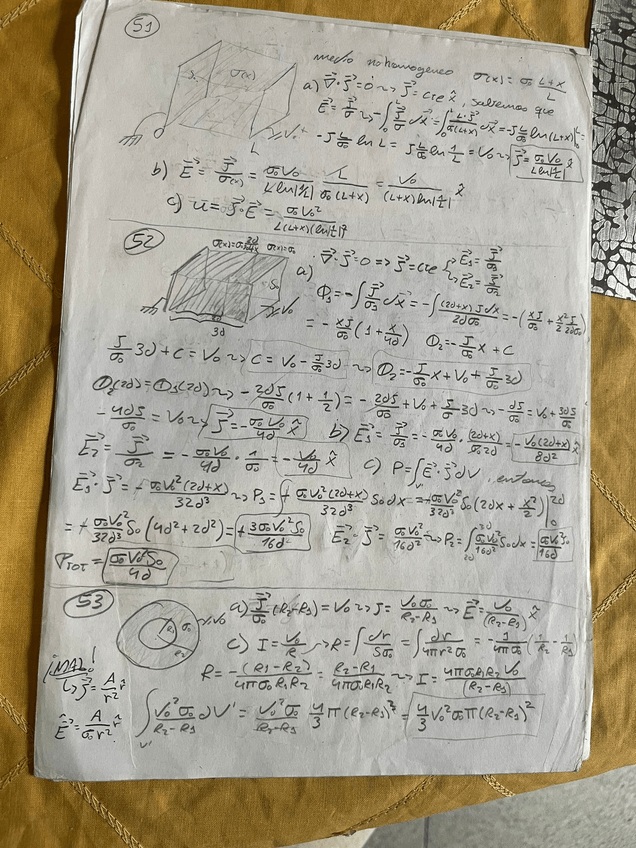 51
medio no homogeneo σ(x) = σ₀ (L+x)/L
S₀ σ(x) L V₀
a) ∇·J = 0 ⇝ J = cte x̂, sabemos que
E = J/σ ⇝ -∫₀ᴸ J/σ dx = ∫₀ᴸ L·J/(σ₀(L+x)) dx = -J L/σ₀ ln(L+x)|₀ᴸ =
-J L/σ₀ ln L = J L/σ₀ ln 1/L = V₀ ⇝ J = σ₀V₀/(L ln|1/L|) x̂
b) E = J/σ(x) = σ₀V₀/(L ln|1/L|) · L/(σ₀(L+x)) = V₀/((L+x) ln|1/L|) x̂
c) u = J·E = σ₀V₀²/(L(L+x)(ln|1/L|)²)
52
σ(x)=σ₀ 2d/(2d+x) σ(x)=σ₀
S₀ V₀ 3d
a) ∇·J = 0 => J = cte E₁ = J/σ₁
E₂ = J/σ₂
Φ₁ = -∫ J/σ₁ dx = -∫ (2d+x)J dx/(2dσ₀) = -(xJ/σ₀ + x²J/(2·2dσ₀))
= -xJ/σ₀ (1 + x/4d) Φ₂ = -J/σ₀ x + C
J/σ₀ 3d + C = V₀ ⇝ C = V₀ - J/σ₀ 3d ⇝ Φ₂ = -J/σ₀ x + V₀ + J/σ₀ 3d
Φ₂(2d) = Φ₁(2d) ⇝ -2dJ/σ₀ (1 + 1/2) = -2dJ/σ₀ + V₀ + J/σ₀ 3d ⇝ -dJ/σ₀ = V₀ + 3dJ/σ₀
-4dJ/σ₀ = V₀ ⇝ J = -σ₀V₀/4d x̂ b) E₁ = J/σ₁ = -σ₀V₀/4d · (2d+x)/(σ₀2d) = -V₀(2d+x)/8d² x̂
E₂ = J/σ₂ = -σ₀V₀/4d · 1/σ₀ = -V₀/4d x̂ c) P = ∫ᵥ E·J dV, entonces
E₁·J = + σ₀V₀²(2d+x)/32d³ ⇝ P₁ = ∫ + σ₀V₀²(2d+x)/32d³ S₀ dx = + σ₀V₀²/32d³ S₀ (2dx + x²/2)|₀²ᵈ
= + σ₀V₀²/32d³ S₀ (4d² + 2d²) = + 3σ₀V₀²S₀/16d E₂·J = σ₀V₀²/16d² ⇝ P₂ = ∫₂ᵈ³ᵈ σ₀V₀²/16d² S₀ dx = σ₀V₀²S₀/16d
P_TOT = σ₀V₀²S₀/4d
53
R₁ σ₀ R₂ V₀
a) J/σ₀ (R₂-R₁) = V₀ ⇝ J = V₀σ₀/(R₂-R₁) ⇝ E = V₀/(R₂-R₁) x̂
c) I = V₀/R ⇝ R = ∫ dr/(Sσ₀) = ∫ dr/(4πr²σ₀) = -1/(4πσ₀) (1/R₂ - 1/R₁)
¡MAL!
↳ J = A/r² r̂
R = -(R₁-R₂)/(4πσ₀R₁R₂) = (R₂-R₁)/(4πσ₀R₁R₂) ⇝ I = 4πσ₀R₁R₂V₀/(R₂-R₁)
E = A/(σ₀r²) r̂
∫ᵥ' V₀²σ₀/(R₂-R₁) dV' = V₀²σ₀/(R₂-R₁) 4/3 π(R₂-R₁)³ = 4/3 V₀²σ₀π(R₂-R₁)²